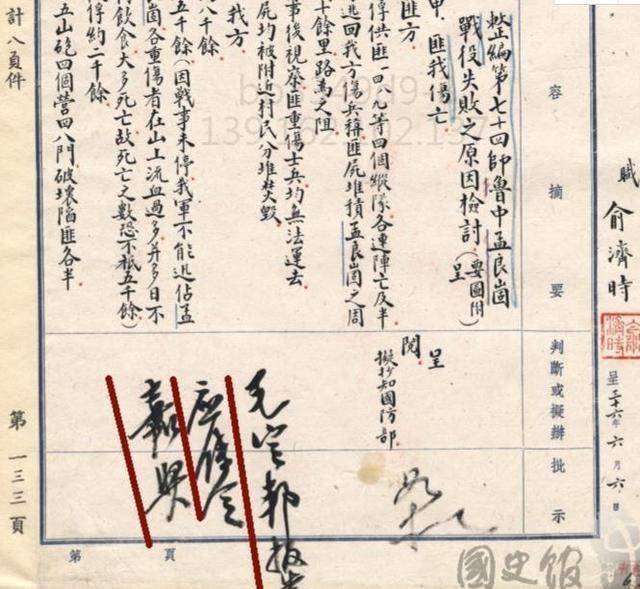 職 俞濟時
呈 三十六年六月六日
容 摘 要
判斷或擬辦
批 示
整編第七十四師魯中孟良崮
戰役失敗之原因檢討(要圖附呈)
甲、匪我傷亡
匪方
俘供匪一四八九等四個縱隊各連陣亡及半
逃回我方傷兵稱匪屍堆積孟良崮之周
十餘里路為之阻
事後視察匪重傷士兵均無法運去
屍均被附近村民分堆焚毀
我方
八千餘
五千餘(因戰事未停我軍不能迅佔孟
崮各重傷者在山上流血過多并多日不
飲食大多死亡故死亡之數恐不祇五千餘)
俘約二千餘
五山砲四個營四八門破壞陷匪各半
呈
閱
擬抄知國防部
如擬
應傳令
嘉奬
計八頁件
第一三三頁
第 頁
國史館